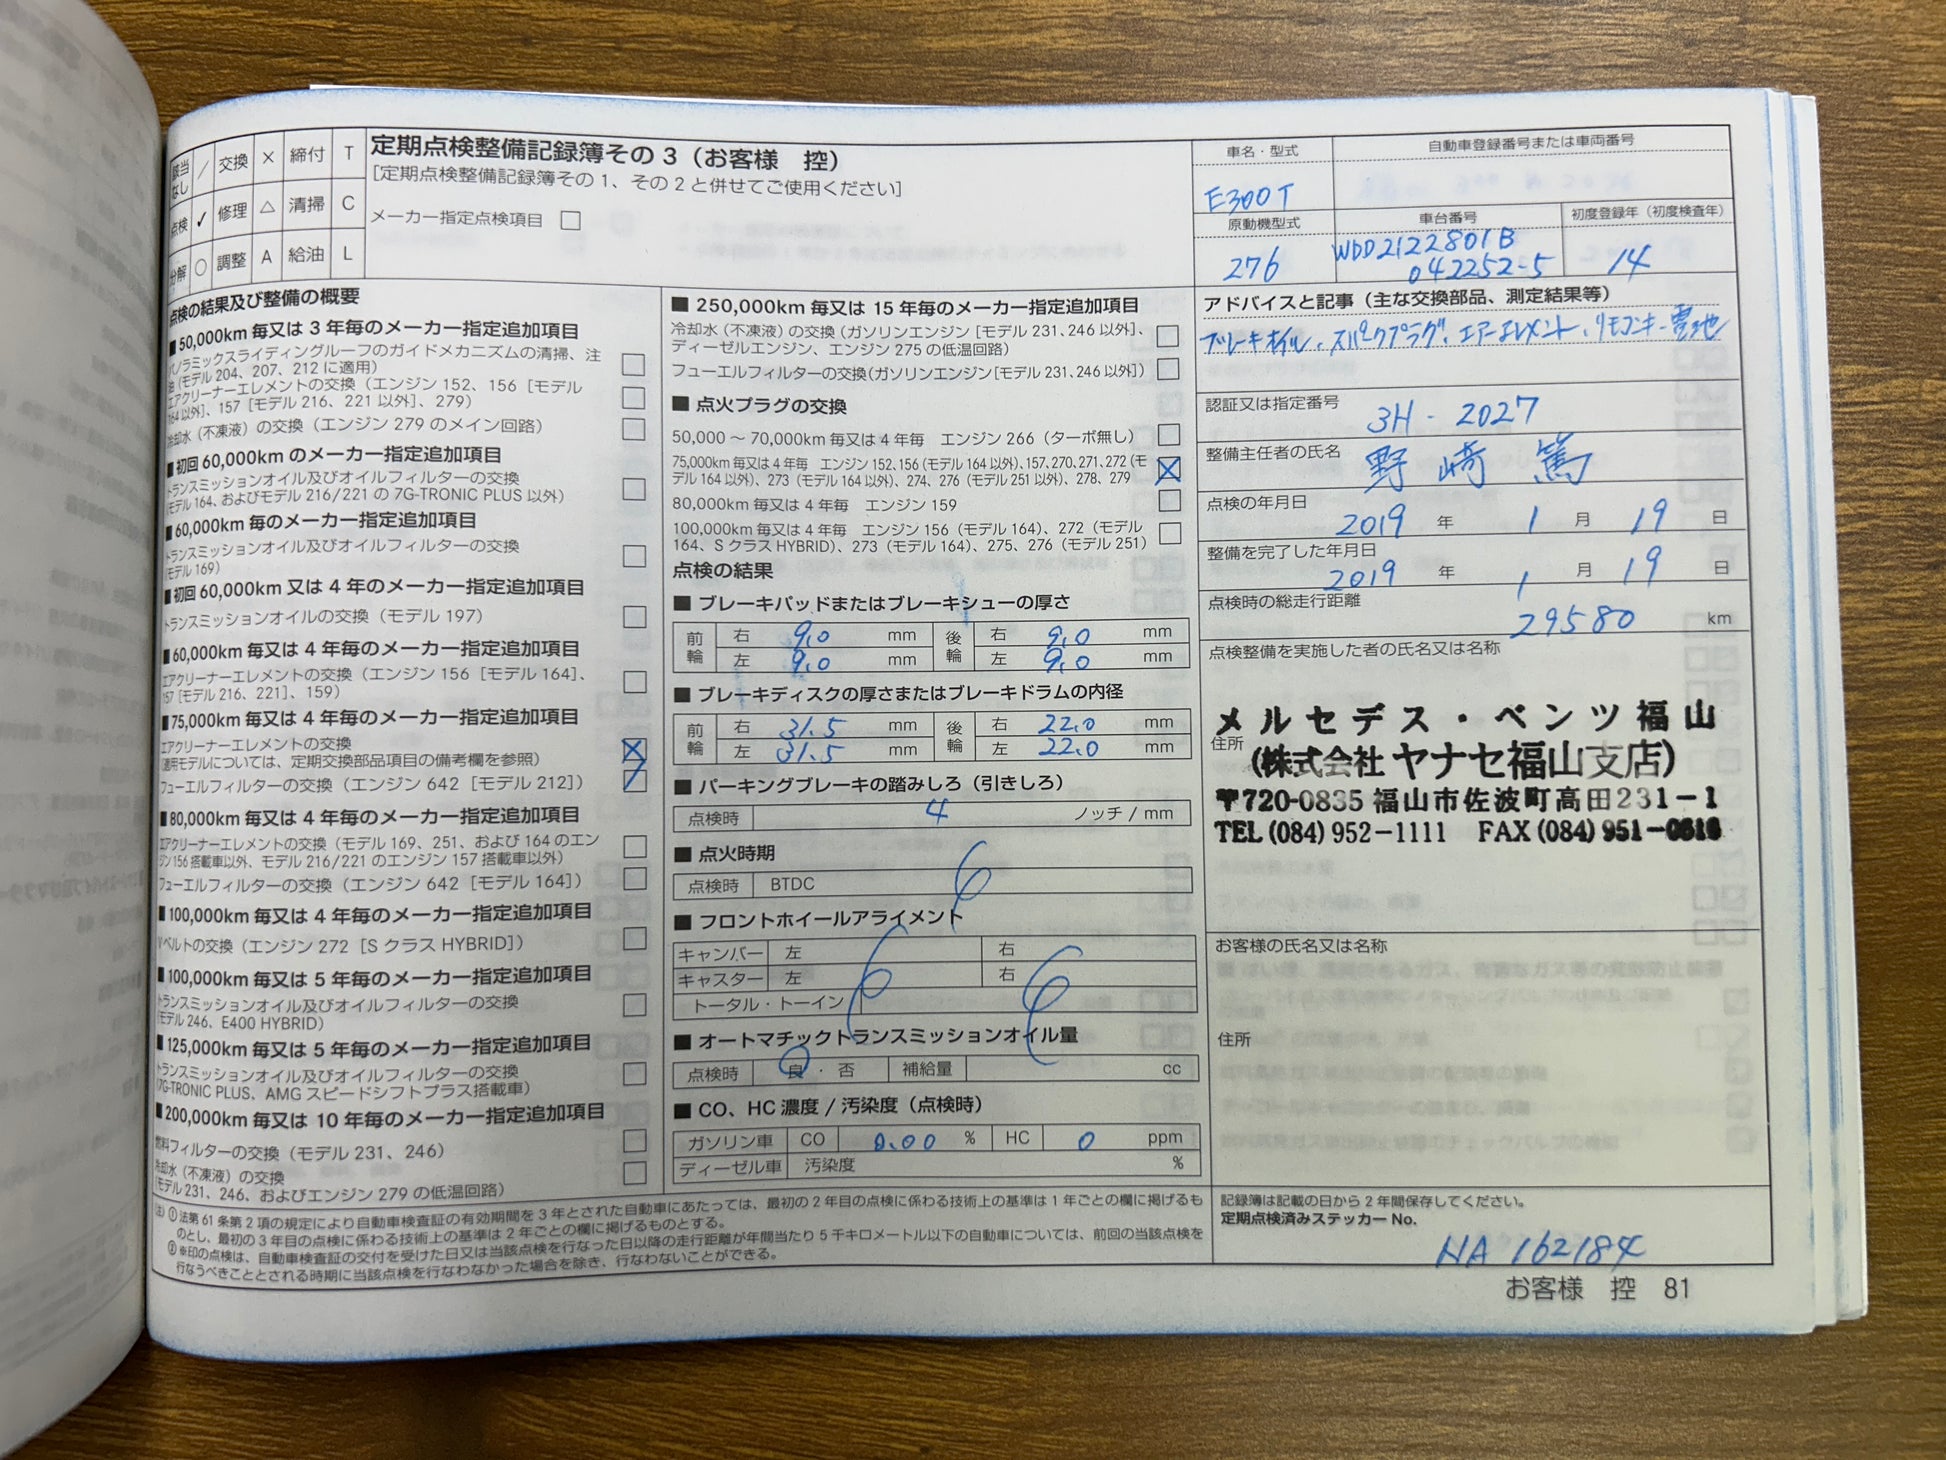 該当なし / 交換 × 締付 T
点検 ✓ 修理 △ 清掃 C
分解 ○ 調整 A 給油 L
定期点検整備記録簿その3(お客様 控)
[定期点検整備記録簿その1、その2と併せてご使用ください]
メーカー指定点検項目 □
車名・型式
E300T
自動車登録番号または車両番号
原動機型式
276
車台番号
WDD2122801B
042252-5
初度登録年(初度検査年)
14
点検の結果及び整備の概要
■50,000km毎又は3年毎のメーカー指定追加項目
パノラミックスライディングルーフのガイドメカニズムの清掃、注
油(モデル204、207、212に適用)
エアクリーナーエレメントの交換(エンジン152、156[モデル
164以外]、157[モデル216、221以外]、279)
冷却水(不凍液)の交換(エンジン279のメイン回路)
■初回60,000kmのメーカー指定追加項目
トランスミッションオイル及びオイルフィルターの交換
(モデル164、およびモデル216/221の7G-TRONIC PLUS以外)
■60,000km毎のメーカー指定追加項目
トランスミッションオイル及びオイルフィルターの交換
(モデル169)
■初回60,000km又は4年のメーカー指定追加項目
トランスミッションオイルの交換(モデル197)
■60,000km毎又は4年毎のメーカー指定追加項目
エアクリーナーエレメントの交換(エンジン156[モデル164]、
157[モデル216、221]、159)
■75,000km毎又は4年毎のメーカー指定追加項目
エアクリーナーエレメントの交換 ×
(適用モデルについては、定期交換部品項目の備考欄を参照)
フューエルフィルターの交換(エンジン642[モデル212]) /
■80,000km毎又は4年毎のメーカー指定追加項目
エアクリーナーエレメントの交換(モデル169、251、および164のエン
ジン156搭載車以外、モデル216/221のエンジン157搭載車以外)
フューエルフィルターの交換(エンジン642[モデル164])
■100,000km毎又は4年毎のメーカー指定追加項目
Vベルトの交換(エンジン272[SクラスHYBRID])
■100,000km毎又は5年毎のメーカー指定追加項目
トランスミッションオイル及びオイルフィルターの交換
(モデル246、E400 HYBRID)
■125,000km毎又は5年毎のメーカー指定追加項目
トランスミッションオイル及びオイルフィルターの交換
(7G-TRONIC PLUS、AMGスピードシフトプラス搭載車)
■200,000km毎又は10年毎のメーカー指定追加項目
燃料フィルターの交換(モデル231、246)
冷却水(不凍液)の交換
(モデル231、246、およびエンジン279の低温回路)
■250,000km毎又は15年毎のメーカー指定追加項目
冷却水(不凍液)の交換(ガソリンエンジン[モデル231、246以外]、
ディーゼルエンジン、エンジン275の低温回路)
フューエルフィルターの交換(ガソリンエンジン[モデル231、246以外])
■点火プラグの交換
50,000~70,000km毎又は4年毎 エンジン266(ターボ無し)
75,000km毎又は4年毎 エンジン152、156(モデル164以外)、157、270、271、272(モ
デル164以外)、273(モデル164以外)、274、276(モデル251以外)、278、279 ×
80,000km毎又は4年毎 エンジン159
100,000km毎又は4年毎 エンジン156(モデル164)、272(モデル
164、SクラスHYBRID)、273(モデル164)、275、276(モデル251)
点検の結果
■ブレーキパッドまたはブレーキシューの厚さ
前輪 右 9.0 mm 後輪 右 9.0 mm
左 9.0 mm 左 9.0 mm
■ブレーキディスクの厚さまたはブレーキドラムの内径
前輪 右 31.5 mm 後輪 右 22.0 mm
左 31.5 mm 左 22.0 mm
■パーキングブレーキの踏みしろ(引きしろ)
点検時 4 ノッチ/mm
■点火時期
点検時 BTDC
■フロントホイールアライメント
キャンバー 左 右
キャスター 左 右
トータル・トーイン
■オートマチックトランスミッションオイル量
点検時 良・否 補給量 cc
■CO、HC濃度/汚染度(点検時)
ガソリン車 CO 0.00 % HC 0 ppm
ディーゼル車 汚染度 %
アドバイスと記事(主な交換部品、測定結果等)
ブレーキオイル、スパークプラグ、エアーエレメント、リモコンキー電池
認証又は指定番号 3H-2027
整備主任者の氏名 野﨑 篤
点検の年月日
2019 年 1 月 19 日
整備を完了した年月日
2019 年 1 月 19 日
点検時の総走行距離
29580 km
点検整備を実施した者の氏名又は名称
メルセデス・ベンツ福山
住所
(株式会社ヤナセ福山支店)
〒720-0835 福山市佐波町高田231-1
TEL(084)952-1111 FAX(084)951-0616
お客様の氏名又は名称
住所
(注)①法第61条第2項の規定により自動車検査証の有効期間を3年とされた自動車にあたっては、最初の2年目の点検に係わる技術上の基準は1年ごとの欄に掲げるも
のとし、最初の3年目の点検に係わる技術上の基準は2年ごとの欄に掲げるものとする。
②※印の点検は、自動車検査証の交付を受けた日又は当該点検を行なった日以降の走行距離が年間当たり5千キロメートル以下の自動車については、前回の当該点検を
行なうべきこととされる時期に当該点検を行なわなかった場合を除き、行なわないことができる。
記録簿は記載の日から2年間保存してください。
定期点検済みステッカーNo.
NA 162184
お客様 控 81